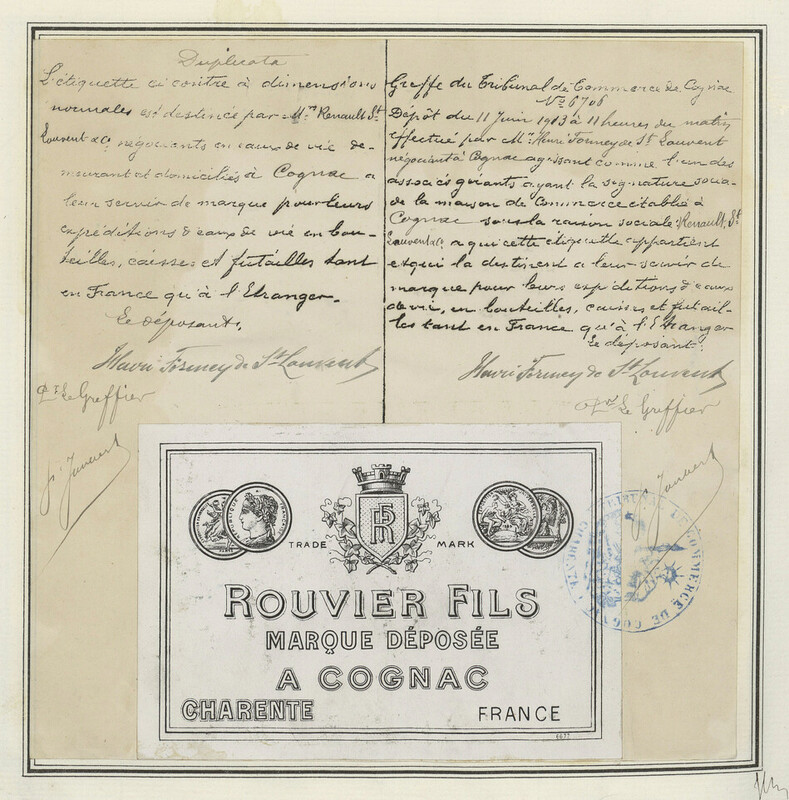 Duplicata
L'étiquette ci contre à dimensions
normales est destinée par Mrs Renault St
Louvent & Co négociants en eaux de vie de-
meurant et domiciliés à Cognac a
leur servir de marque pour leurs
expéditions d'eaux de vie en bou-
teilles, caisses et futailles tant
en France qu'à l'Etranger.
Le déposant,
Henri Formey de St Louvent
Pr Le Greffier
Greffe du Tribunal de Commerce de Cognac
No 6706
Dépôt du 11 Juin 1913 à 11 heures du matin
effectué par Mr Henri Formey de St Louvent
négociant à Cognac agissant comme l'un des
associés gérants ayant la signature socia-
de la maison de Commerce établie à
Cognac sous la raison sociale: Renault, St
Louvent & Co a qui cette étiquette appartient
et qui la destinent a leur servir de
marque pour leurs expéditions d'eaux
de vie, en bouteilles, caisses et futail-
les tant en France qu'à l'Etranger
Le déposant:
Henri Formey de St Louvent
Pr Le Greffier
TRADE MARK
ROUVIER FILS
MARQUE DÉPOSÉE
A COGNAC
CHARENTE FRANCE
TRIBUNAL DE COMMERCE DE COGNAC